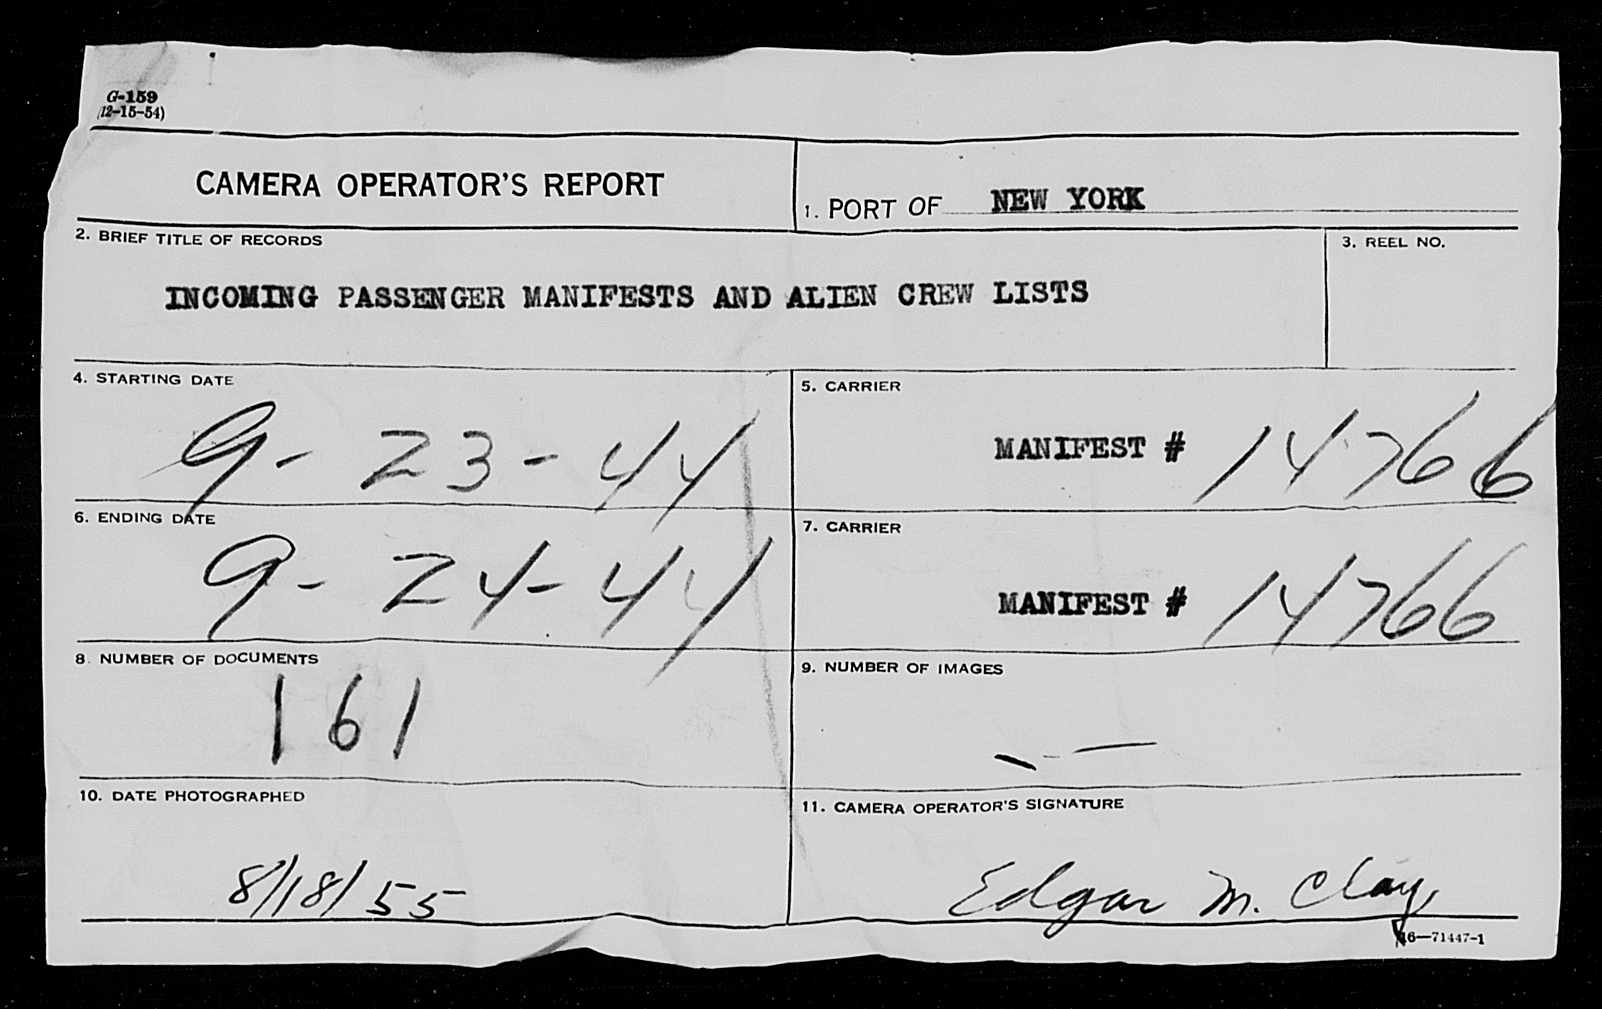 G-159
(12-15-54)
CAMERA OPERATOR'S REPORT
1. PORT OF NEW YORK
2. BRIEF TITLE OF RECORDS
3. REEL NO.
INCOMING PASSENGER MANIFESTS AND ALIEN CREW LISTS
4. STARTING DATE
5. CARRIER
9-23-44
MANIFEST # 14766
6. ENDING DATE
7. CARRIER
9-24-44
MANIFEST # 14766
8. NUMBER OF DOCUMENTS
9. NUMBER OF IMAGES
161
10. DATE PHOTOGRAPHED
11. CAMERA OPERATOR'S SIGNATURE
8/18/55
Edgar M. Clay
16—71447-1